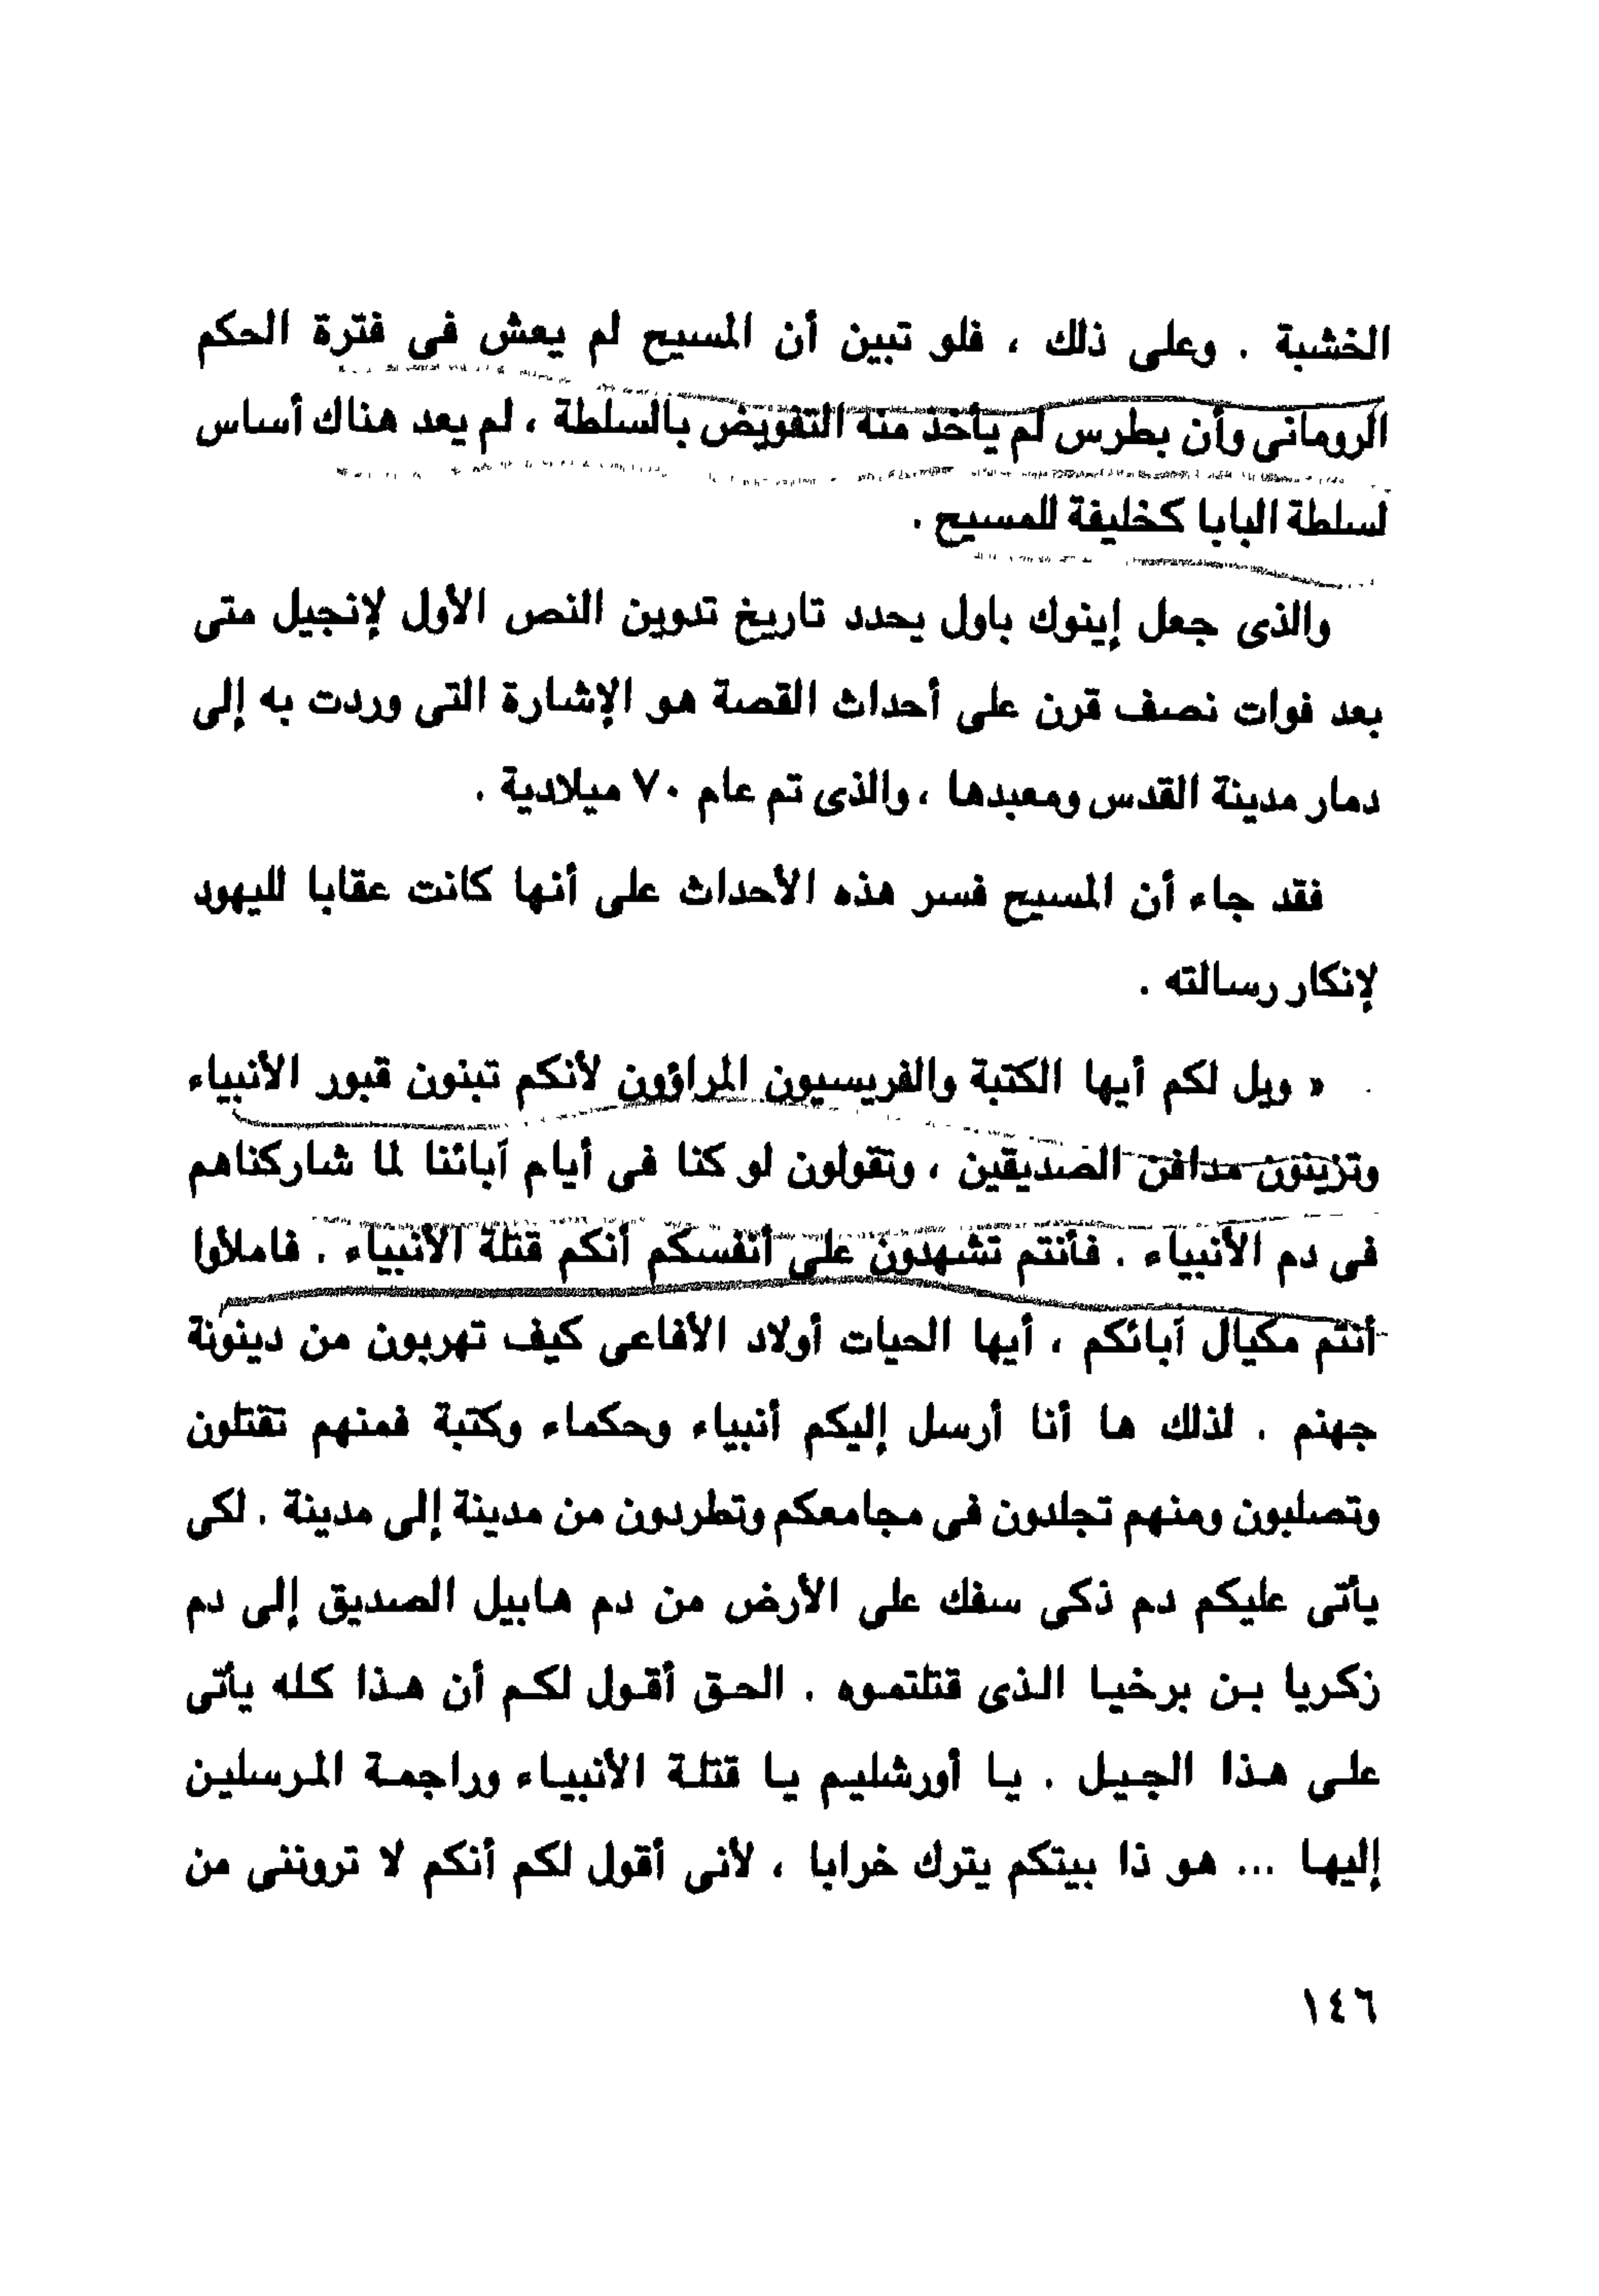 الخشبة . وعلى ذلك ، فلو تبين أن المسيح لم يعش فى فترة الحكم
الرومانى وأن بطرس لم يأخذ منه التفويض بالسلطة ، لم يعد هناك أساس
لسلطة البابا كخليفة للمسيح .
والذى جعل إينوك باول يحدد تاريخ تدوين النص الأول لإنجيل متى
بعد فوات نصف قرن على أحداث القصة هو الإشارة التى وردت به إلى
دمار مدينة القدس ومعبدها ، والذى تم عام ٧٠ ميلادية .
فقد جاء أن المسيح فسر هذه الأحداث على أنها كانت عقابا لليهود
لإنكار رسالته .
« ويل لكم أيها الكتبة والفريسيون المراؤون لأنكم تبنون قبور الأنبياء
وتزينون مدافن الصديقين ، وتقولون لو كنا فى أيام آبائنا لما شاركناهم
فى دم الأنبياء . فأنتم تشهدون على أنفسكم أنكم قتلة الأنبياء . فاملأوا
أنتم مكيال آبائكم ، أيها الحيات أولاد الأفاعى كيف تهربون من دينونة
جهنم . لذلك ها أنا أرسل إليكم أنبياء وحكماء وكتبة فمنهم تقتلون
وتصلبون ومنهم تجلدون فى مجامعكم وتطردون من مدينة إلى مدينة . لكى
يأتى عليكم دم ذكى سفك على الأرض من دم هابيل الصديق إلى دم
زكريا بن برخيا الذى قتلتموه . الحق أقول لكم أن هذا كله يأتى
على هذا الجيل . يا أورشليم يا قتلة الأنبياء وراجمة المرسلين
إليها ... هو ذا بيتكم يترك خرابا ، لأنى أقول لكم أنكم لا تروننى من
١٤٦